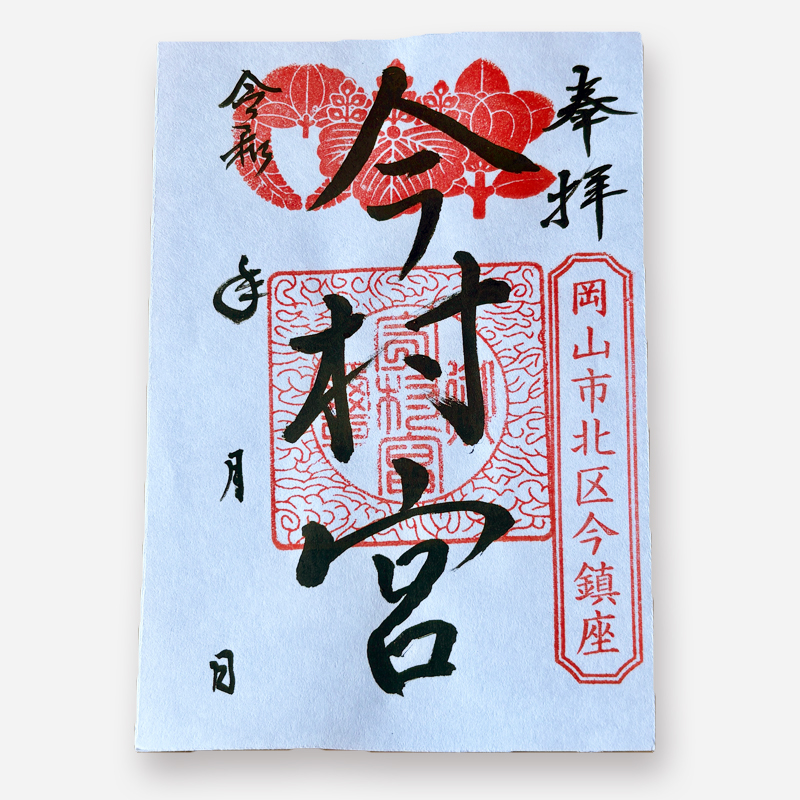 奉拝
岡山市北区今鎮座
今村宮
令和 年 月 日